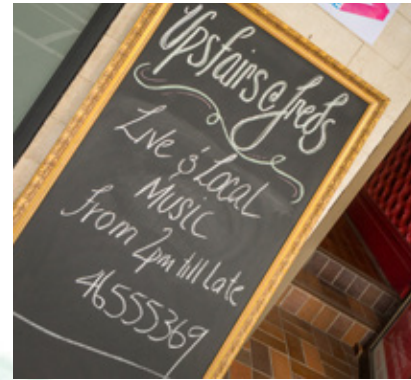 Upstairs@freds
Live & Local
Music
from 2pm till late
46555369